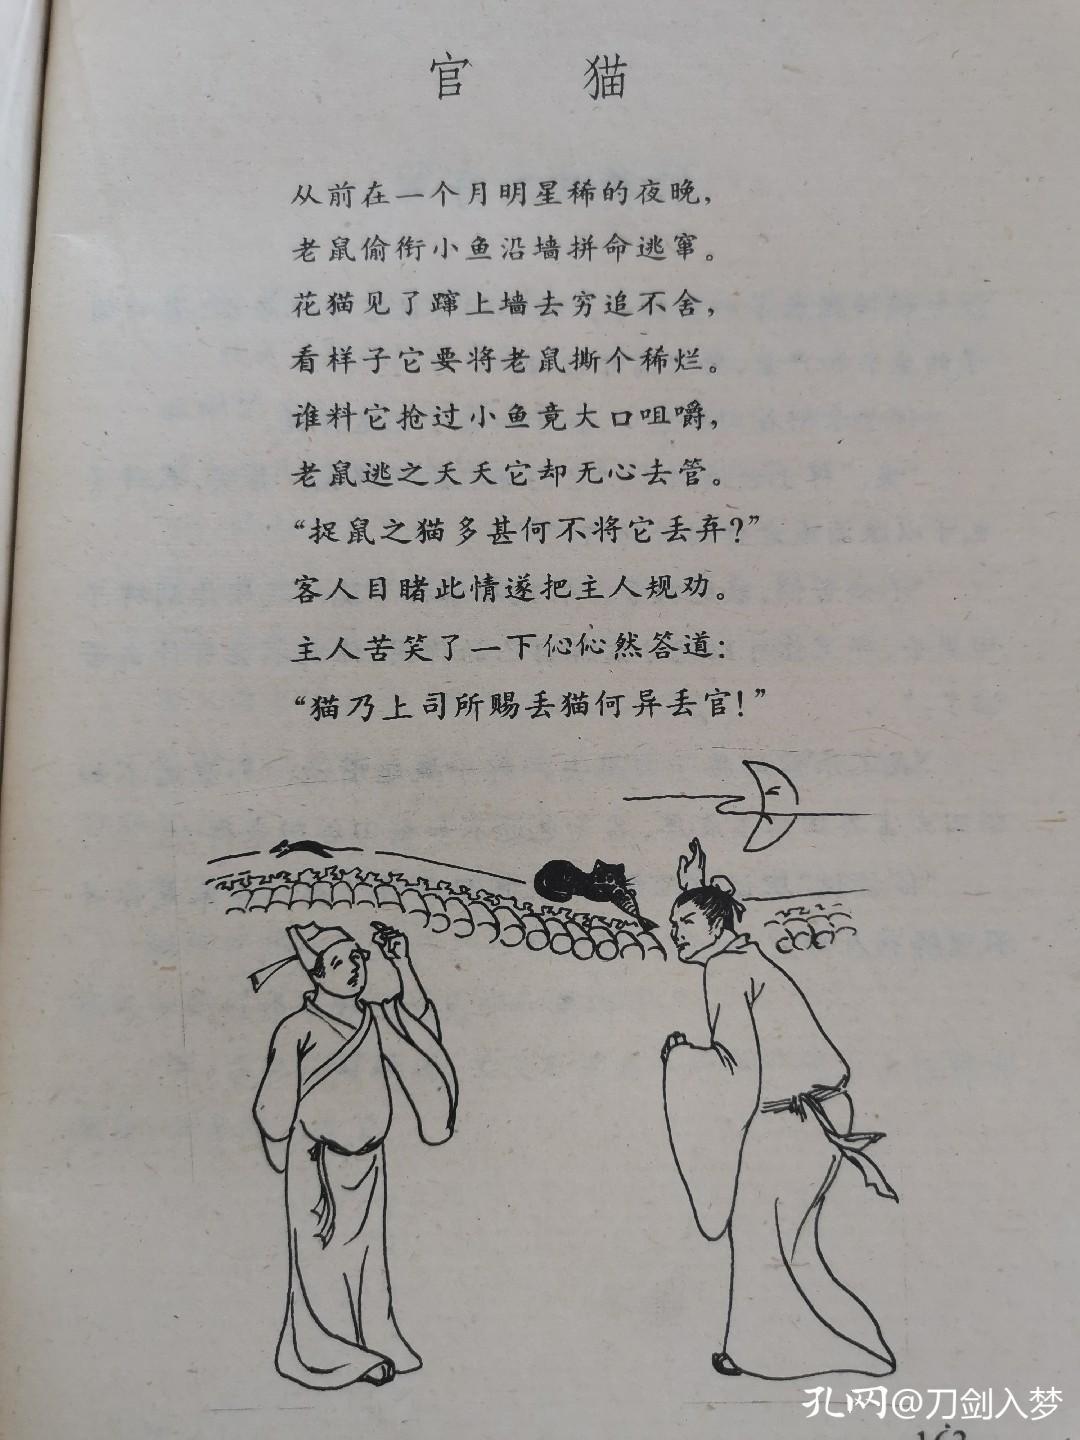 官 猫
从前在一个月明星稀的夜晚，
老鼠偷衔小鱼沿墙拼命逃窜。
花猫见了蹿上墙去穷追不舍，
看样子它要将老鼠撕个稀烂。
谁料它抢过小鱼竟大口咀嚼，
老鼠逃之夭夭它却无心去管。
“捉鼠之猫多甚何不将它丢弃？”
客人目睹此情遂把主人规劝。
主人苦笑了一下伈伈然答道：
“猫乃上司所赐丢猫何异丢官！”
孔网@刀剑入梦